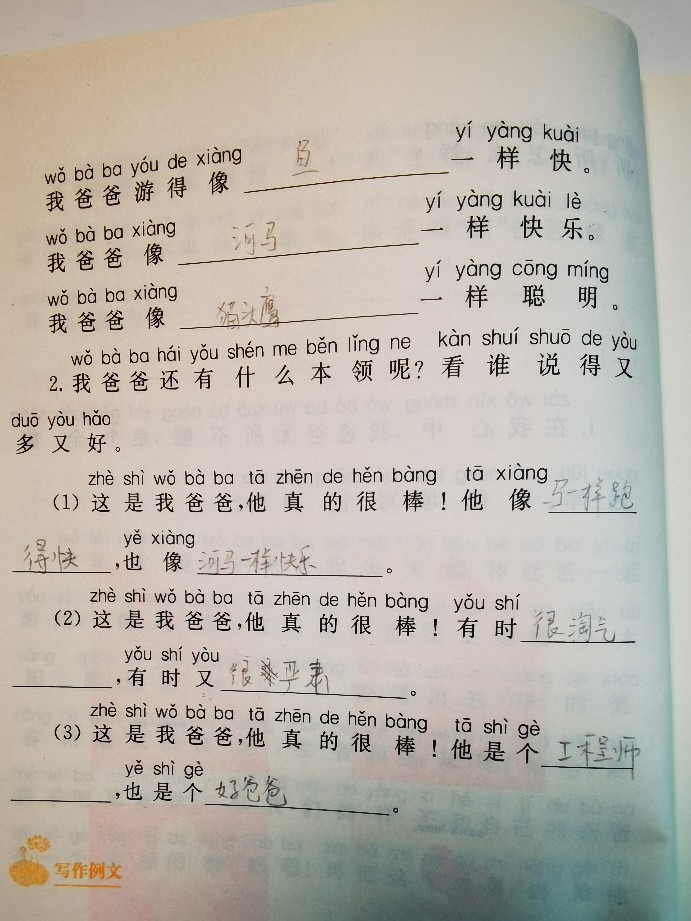 wǒ bà ba yóu de xiàng yí yàng kuài
我爸爸游得像 鱼 一样快。
wǒ bà ba xiàng yí yàng kuài lè
我爸爸像 河马 一样快乐。
wǒ bà ba xiàng yí yàng cōng míng
我爸爸像 猫头鹰 一样聪明。
wǒ bà ba hái yǒu shén me běn lǐng ne kàn shuí shuō de yòu
2.我爸爸还有什么本领呢?看谁说得又
duō yòu hǎo
多又好。
zhè shì wǒ bà ba tā zhēn de hěn bàng tā xiàng
(1)这是我爸爸,他真的很棒!他像 马一样跑
yě xiàng
得快,也像 河马一样快乐。
zhè shì wǒ bà ba tā zhēn de hěn bàng yǒu shí
(2)这是我爸爸,他真的很棒!有时 很淘气
yǒu shí yòu
,有时又 很严肃。
zhè shì wǒ bà ba tā zhēn de hěn bàng tā shì gè
(3)这是我爸爸,他真的很棒!他是个 工程师
yě shì gè
,也是个 好爸爸。
写作例文